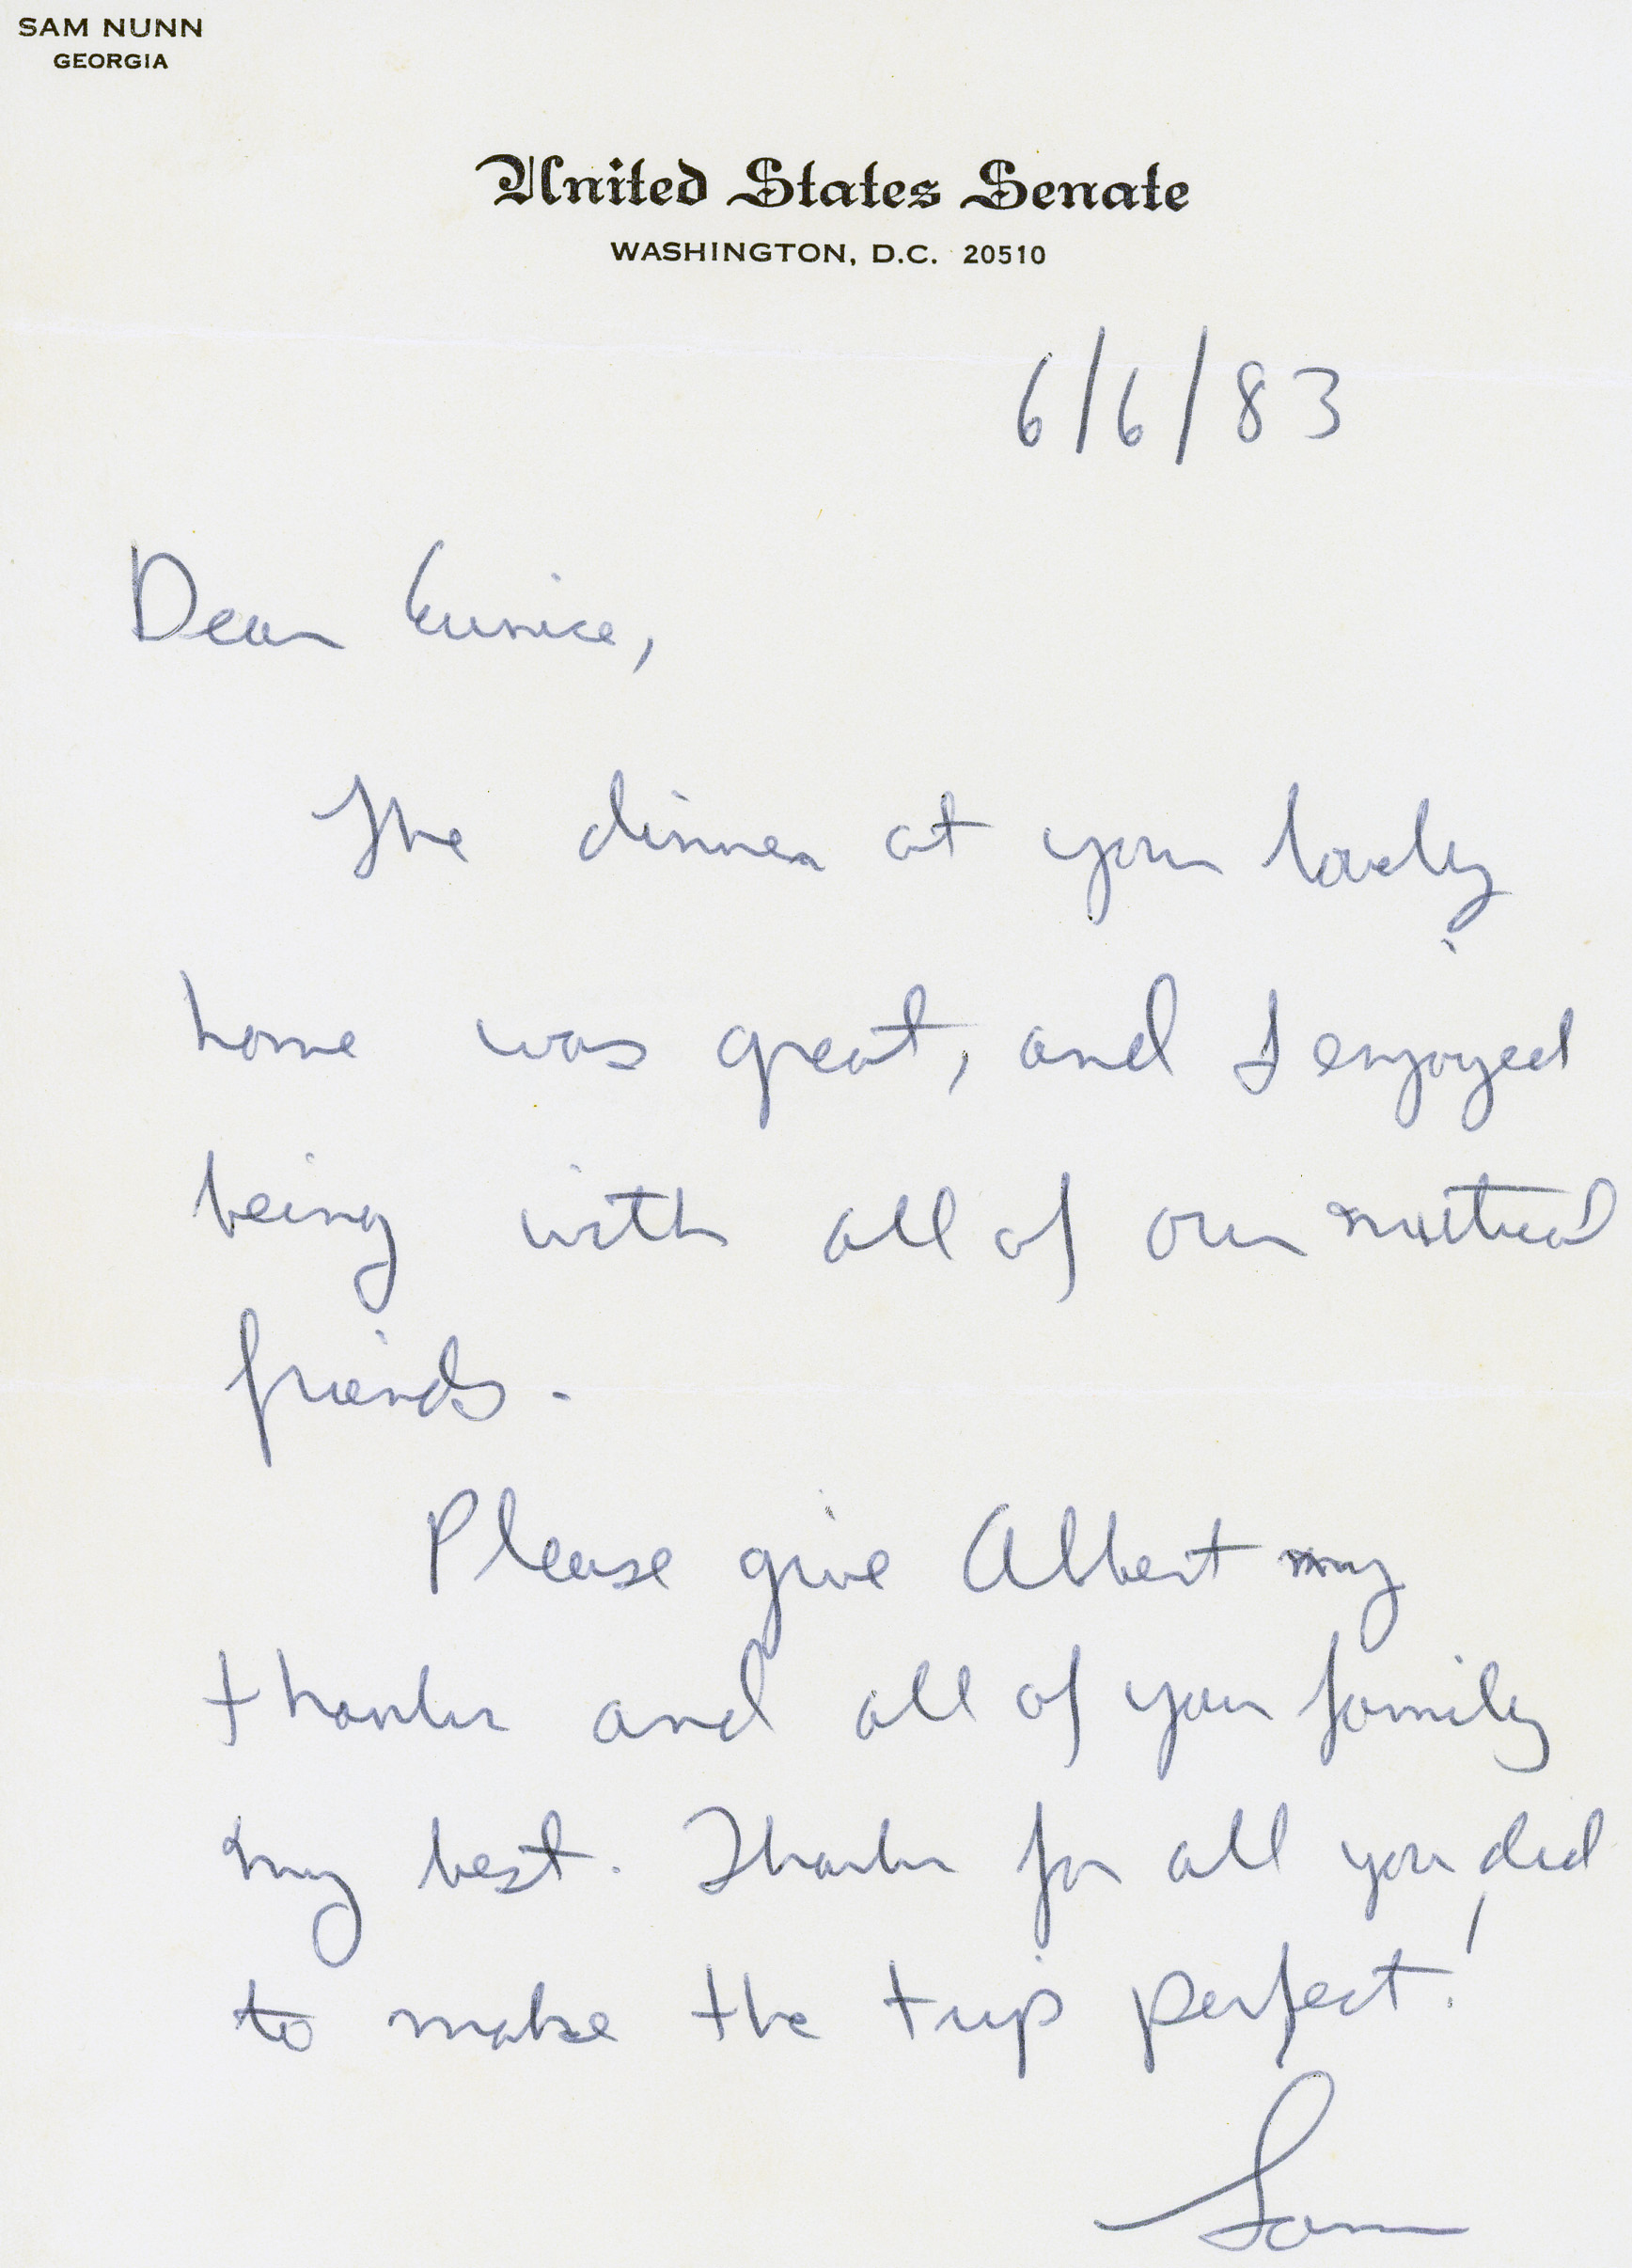 SAM NUNN
GEORGIA
United States Senate
WASHINGTON, D.C. 20510
6/6/83
Dear Eunice,
The dinner at your lovely
home was great, and I enjoyed
being with all of our mutual
friends.
Please give Albert my
thanks and all of your family
my best. Thanks for all you did
to make the trip perfect!
Sam